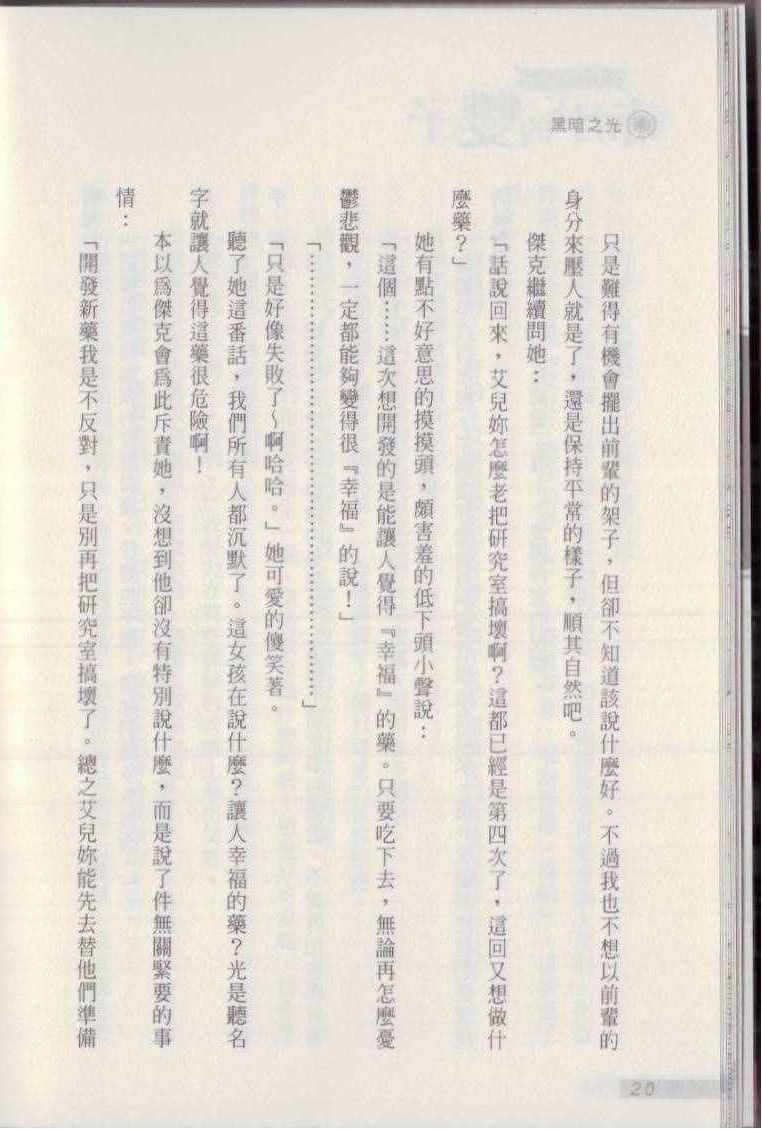 黑暗之光
只是難得有機會擺出前輩的架子，但卻不知道該說什麼好。不過我也不想以前輩的
身分來壓人就是了，還是保持平常的樣子，順其自然吧。
傑克繼續問她：
「話說回來，艾兒妳怎麼老把研究室搞壞啊？這都已經是第四次了，這回又想做什
麼藥？」
她有點不好意思的摸摸頭，頗害羞的低下頭小聲說：
「這個……這次想開發的是能讓人覺得『幸福』的藥。只要吃下去，無論再怎麼憂
鬱悲觀，一定都能夠變得很『幸福』的說！」
「………………………………………………………」
「只是好像失敗了～啊哈哈。」她可愛的傻笑著。
聽了她這番話，我們所有人都沉默了。這女孩在說什麼？讓人幸福的藥？光是聽名
字就讓人覺得這藥很危險啊！
本以為傑克會為此斥責她，沒想到他卻沒有特別說什麼，而是說了件無關緊要的事
情：
「開發新藥我是不反對，只是別再把研究室搞壞了。總之艾兒妳能先去替他們準備
20